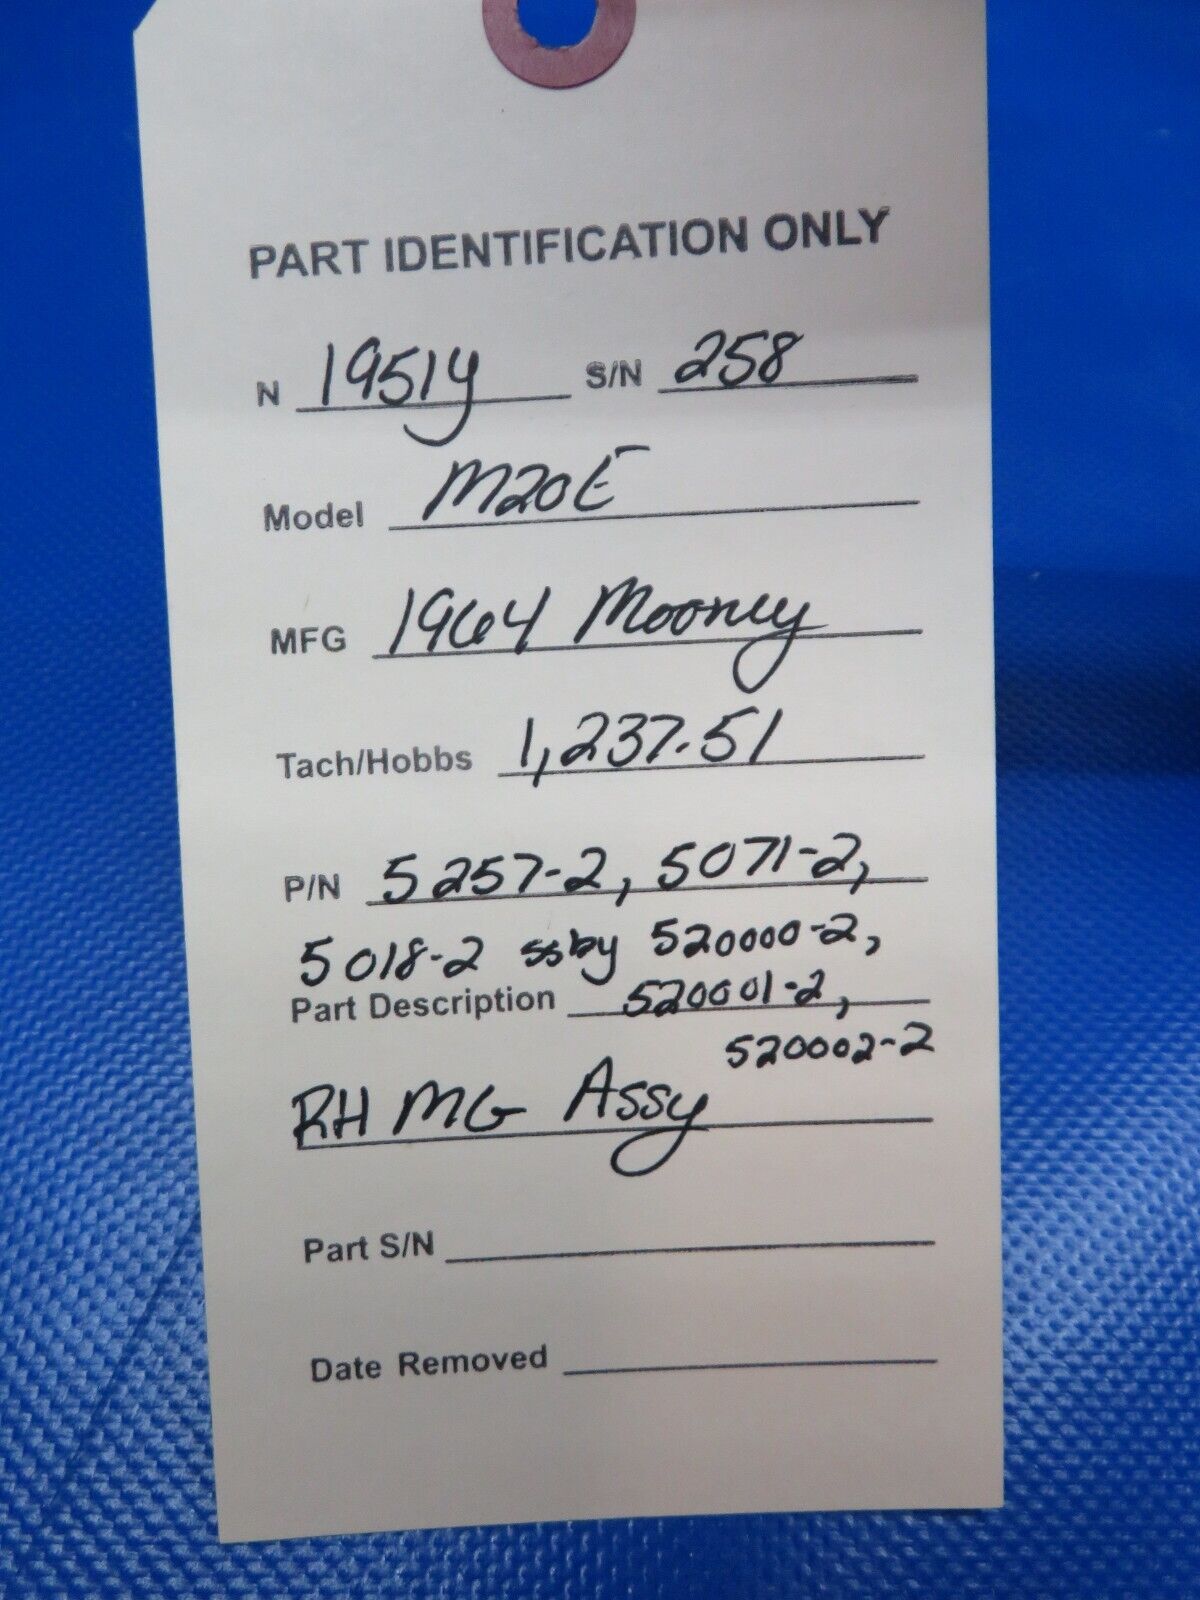 PART IDENTIFICATION ONLY
N 1951y S/N 258
Model M20E
MFG 1964 Mooney
Tach/Hobbs 1,237.51
P/N 5257-2, 5071-2,
5018-2 ssby 520000-2,
Part Description 520001-2,
520002-2
RH MG Assy
Part S/N
Date Removed